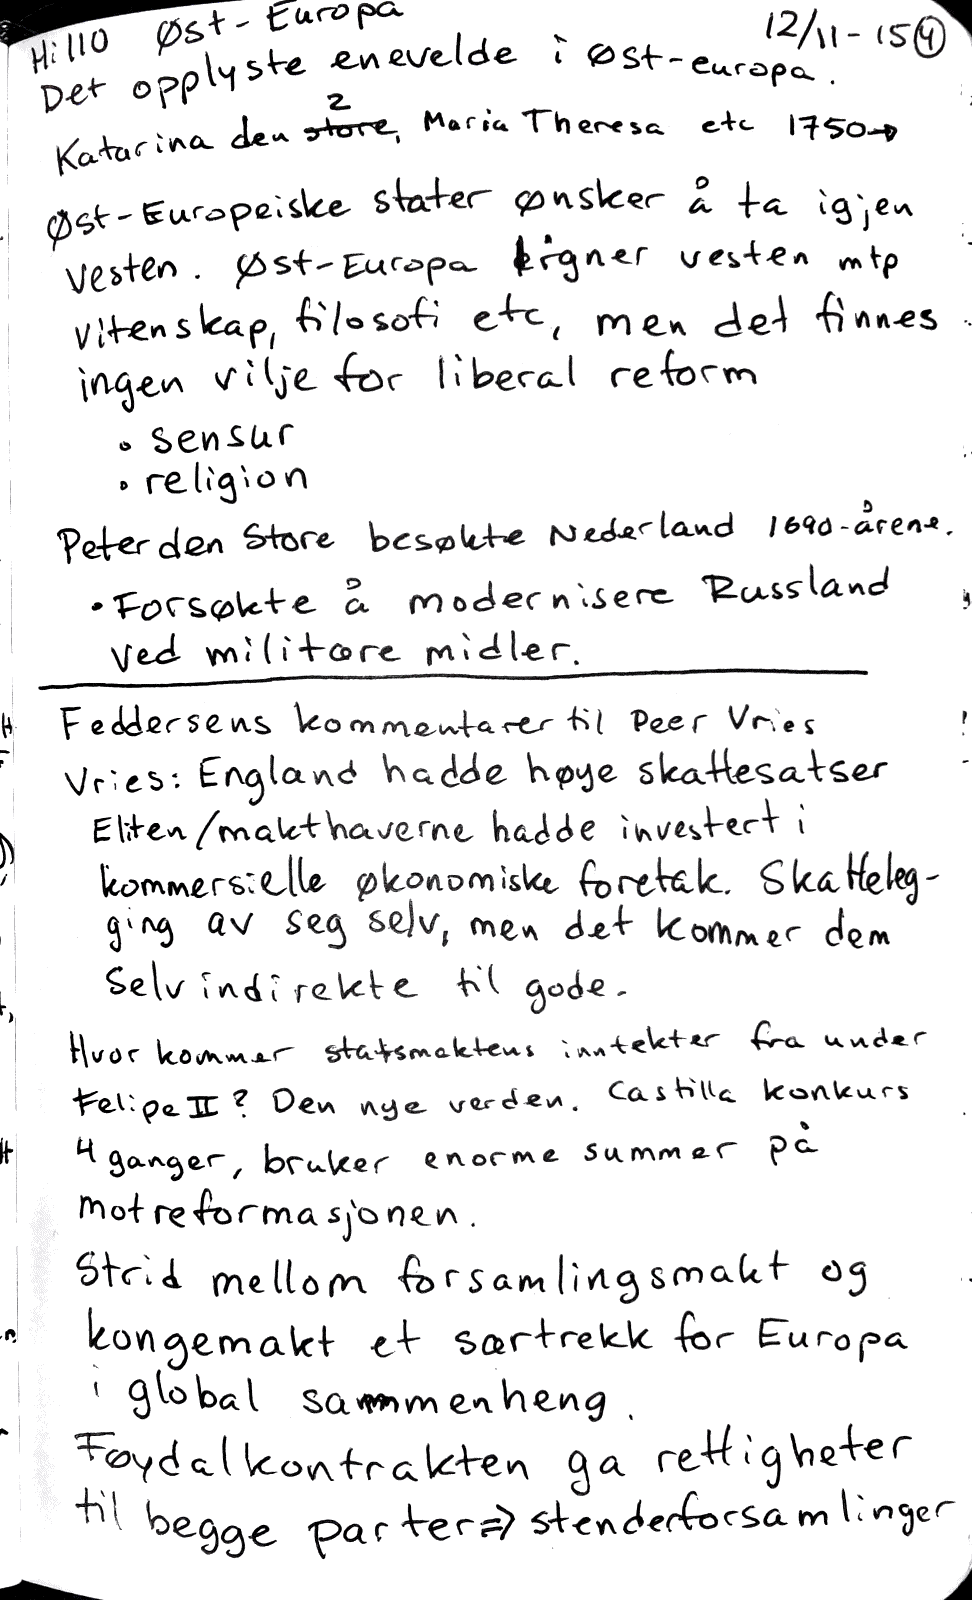 Hi110 Øst-Europa 12/11-15 4
Det opplyste enevelde i øst-europa.
Katarina den store, 2 Maria Theresa etc 1750→
Øst-Europeiske stater ønsker å ta igjen
vesten. Øst-Europa ligner vesten mtp
vitenskap, filosofi etc, men det finnes
ingen vilje for liberal reform
• sensur
• religion
Peter den Store besøkte Nederland 1690-årene.
• Forsøkte å modernisere Russland
ved militære midler.
Feddersens kommentarer til Peer Vries
Vries: England hadde høye skattesatser
Eliten/makthaverne hadde investert i
kommersielle økonomiske foretak. Skatteleg-
ging av seg selv, men det kommer dem
selv indirekte til gode.
Hvor kommer statsmaktens inntekter fra under
Felipe II? Den nye verden. Castilla konkurs
4 ganger, bruker enorme summer på
motreformasjonen.
Strid mellom forsamlingsmakt og
kongemakt et særtrekk for Europa
i global sammenheng.
Føydalkontrakten ga rettigheter
til begge parter ⇒ stenderforsamlinger